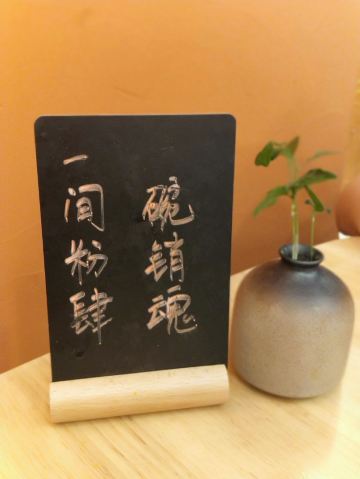 一间粉肆
碗销魂